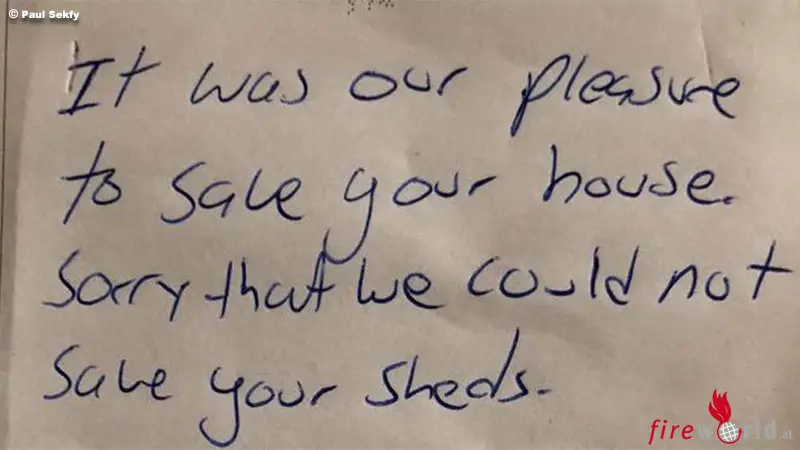 © Paul Sekfy
It was our pleasure
to save your house.
Sorry that we could not
save your sheds.
fireworld.at